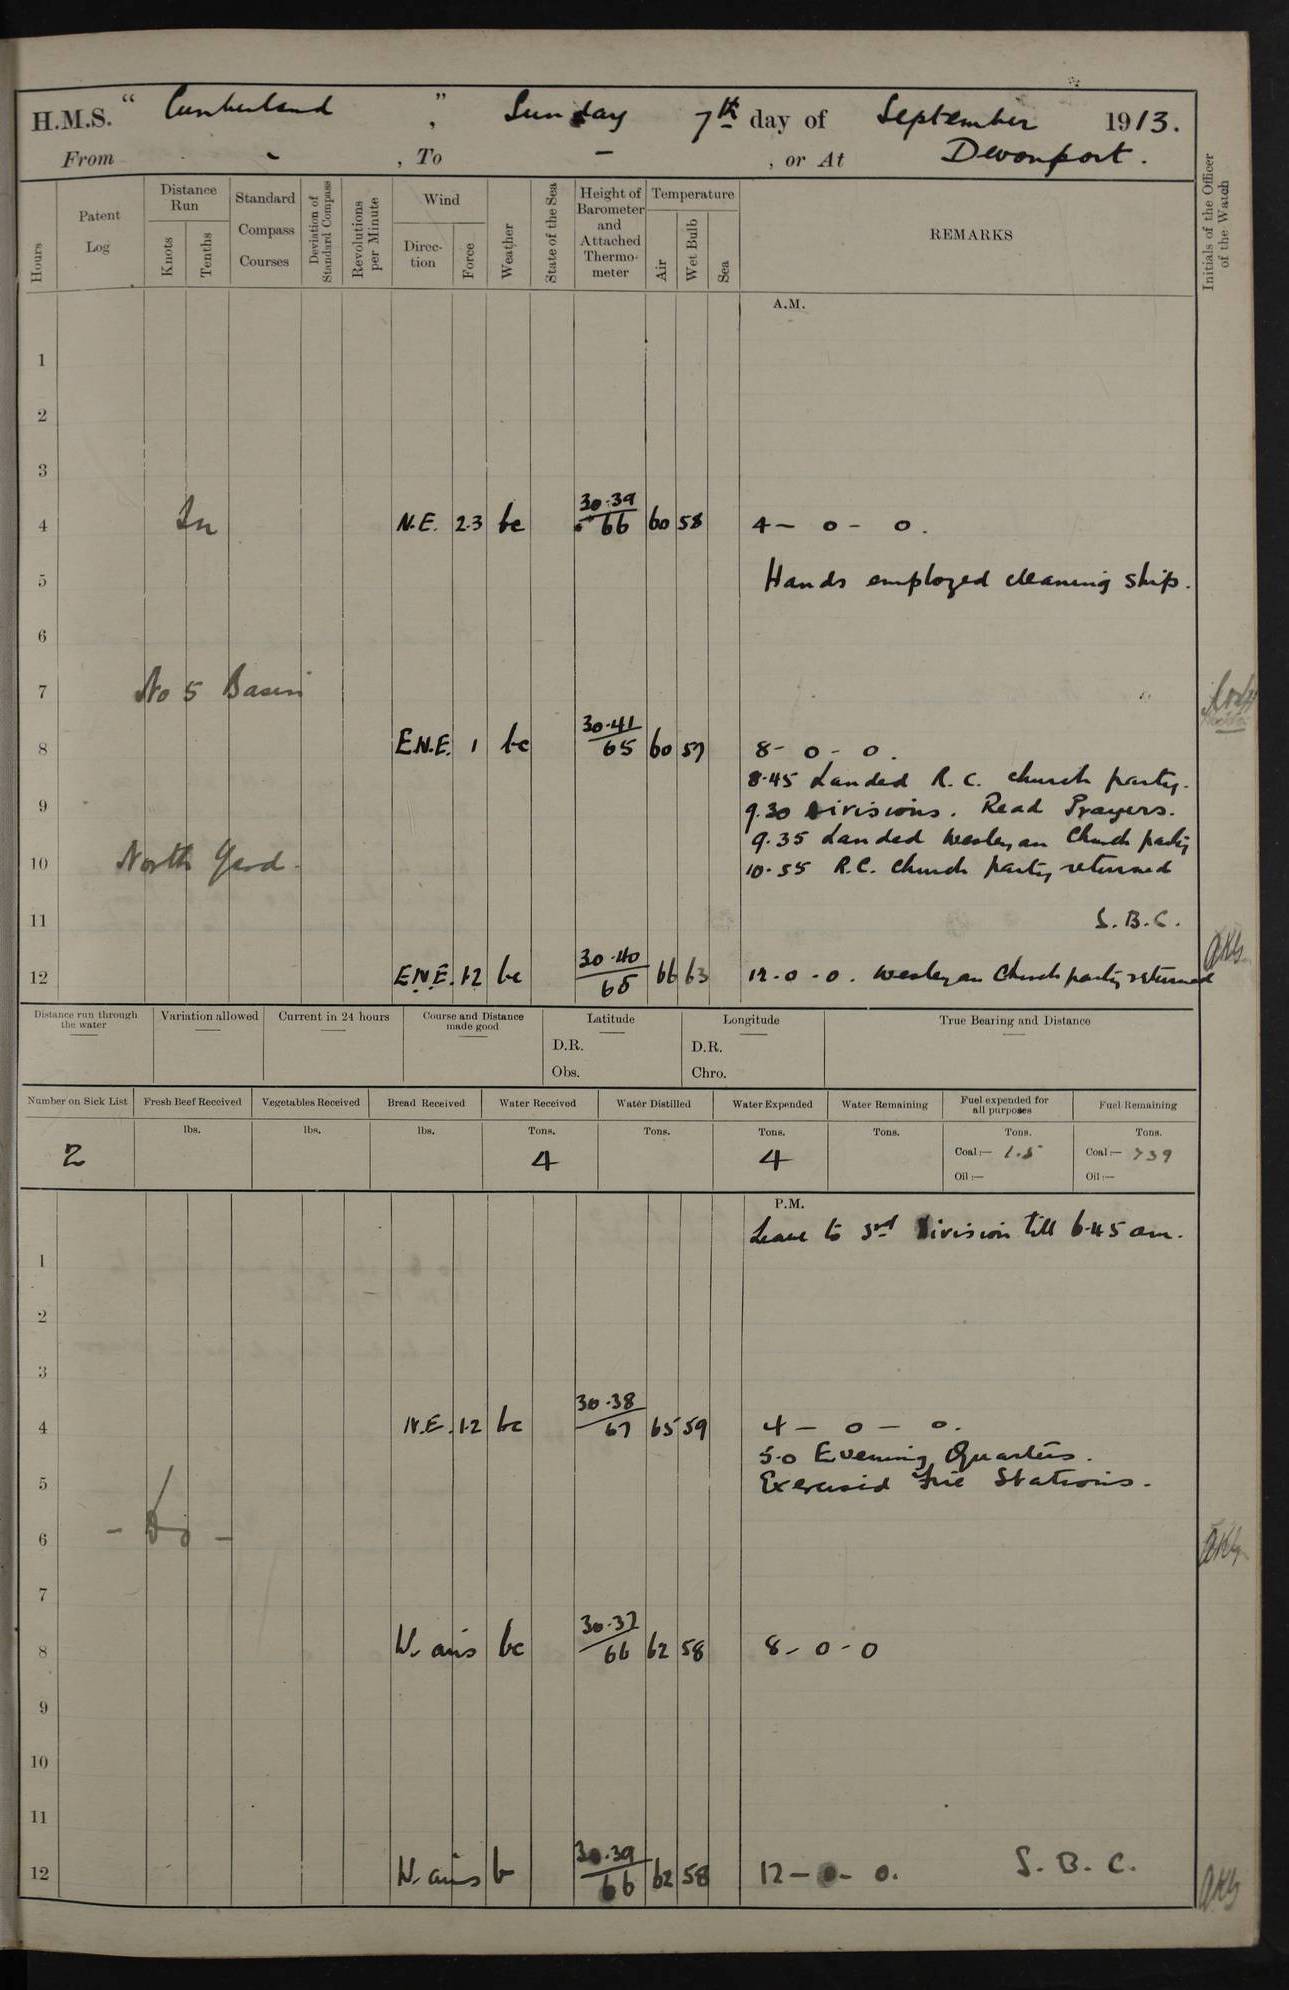 H.M.S. “ Cumberland ” , Sunday 7th day of September 1913.
From - , To - , or At Devonport.
Hours
Patent Log
Distance Run
Knots
Tenths
Standard Compass Courses
Deviation of Standard Compass
Revolutions per Minute
Wind
Direction
Force
Weather
State of the Sea
Height of Barometer and Attached Thermometer
Temperature
Air
Wet Bulb
Sea
REMARKS
Initials of the Officer of the Watch
A.M.
1
2
3
4 In N.E. 2.3 bc 30.39 66 60 58 4 - 0 - 0.
5 Hands employed cleaning ship.
6
7 No 5 Basin
8 E.N.E. 1 bc 30.41 65 60 57 8 - 0 - 0.
8.45 Landed R.C. church party.
9 9.30 Divisions. Read Prayers.
9.35 Landed Wesleyan Church party
10 North Yard. 10.55 R.C. church party returned
11 S.B.C.
12 E.N.E. 1.2 bc 30.40 65 66 63 12 - 0 - 0. Wesleyan Church party returned
Distance run through the water
Variation allowed
Current in 24 hours
Course and Distance made good
Latitude
D.R.
Obs.
Longitude
D.R.
Chro.
True Bearing and Distance
Number on Sick List
Fresh Beef Received
Vegetables Received
Bread Received
Water Received
Water Distilled
Water Expended
Water Remaining
Fuel expended for all purposes
Fuel Remaining
lbs. lbs. lbs. Tons. Tons. Tons. Tons. Tons. Tons.
2 4 4 Coal:— 1.5 Coal:— 739
Oil:— Oil:—
P.M.
Leave to 3rd Division till 6.45 am.
1
2
3
4 N.E. 1.2 bc 30.38 67 65 59 4 - 0 - 0.
5.0 Evening Quarters.
5 Exercised Fire Stations.
6 - Do -
7
8 W. airs bc 30.37 66 62 58 8 - 0 - 0
9
10
11
12 W. airs b 30.39 66 62 58 12 - 0 - 0. S.B.C.